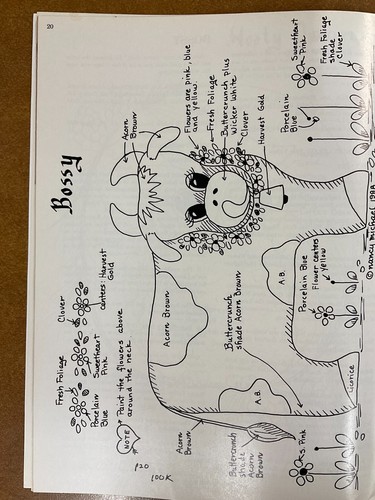 20
Bossy
Acorn
Brown
Flowers are pink, blue
and yellow.
Fresh Foliage
Buttercrunch plus
Wicker White
Clover
Harvest Gold
Sweetheart
Pink
Fresh Foliage
shade
Clover
Porcelain
Blue
Fresh Foliage
Clover
Porcelain
Blue
Sweetheart
Pink
centers: Harvest
Gold
NOTE
Paint the flowers above
around the neck.
Acorn Brown
Buttercrunch
shade Acorn Brown
A.B.
A.B.
Porcelain Blue
Flower centers
yellow
Acorn
Brown
Buttercrunch
shade
Acorn
Brown
Licorice
S. Pink
P20
100%
© nancy michael 1998